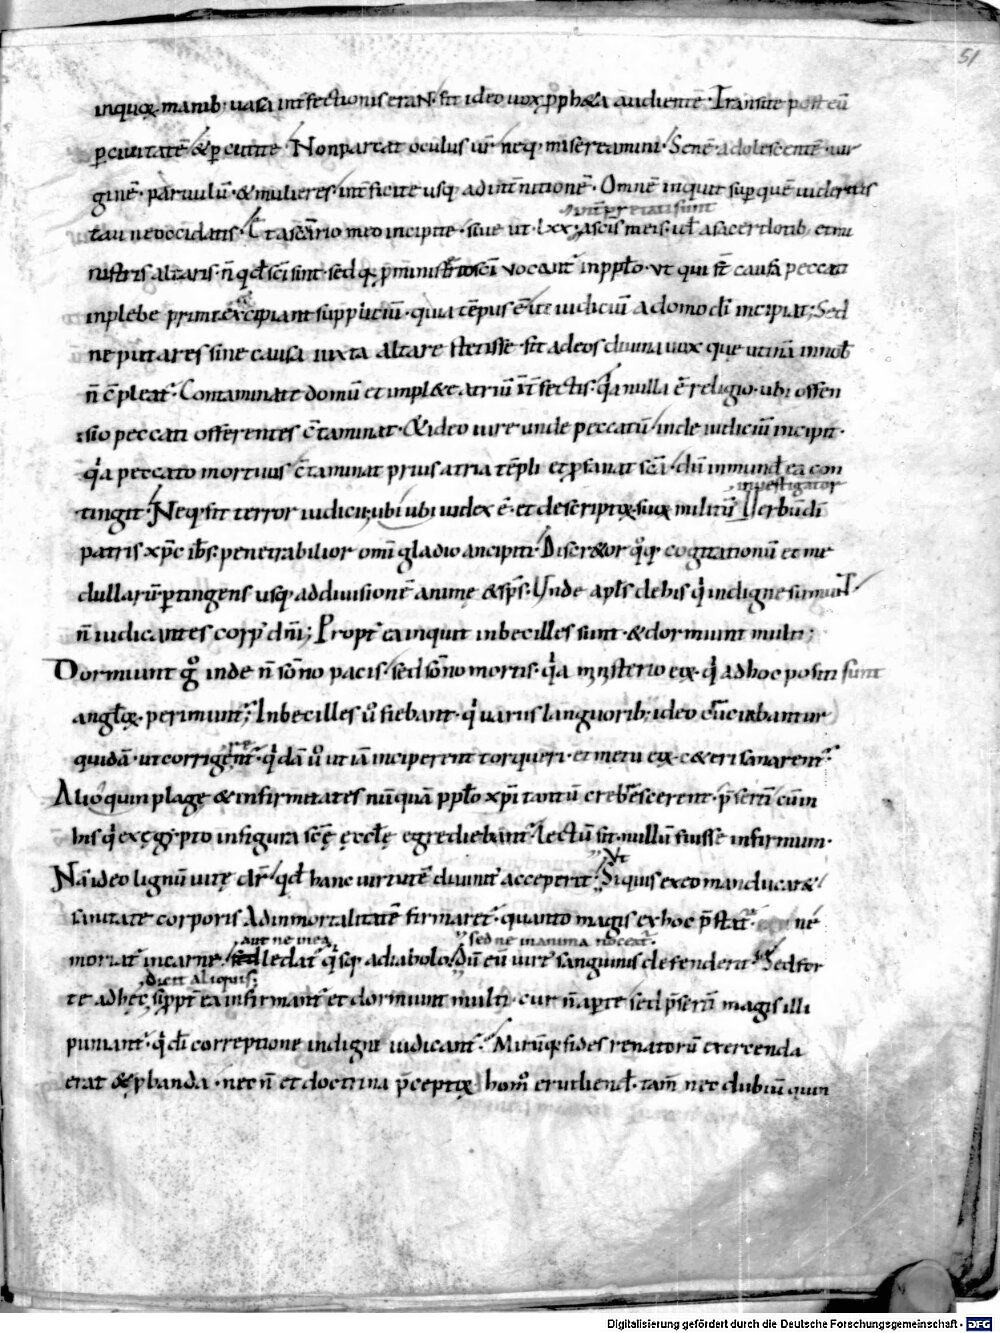 51
inquoꝝ manib; uasa int̄fectionis eraN. fit ideo uox pph&a audientē. Transite post eū
ꝑ ciuitatē & ꝑcutite. Non parcat oculus ur̄ neq; misereamini. Senē adolescentē uir
ginē. paruulū. & mulieres int̄ficite usq; ad int̄nitionē. Omnē inquit sup quē uideritis
int̄pretati sunt
tau ne occidatis. Et a sc̄uario meo incipite. siue ut .lxx. a sc̄is meis. ul̓ a sacerdotib; et mi
nistris altaris. n̄ qđ sc̄i sint sed q; p ministerio sc̄i vocant̄ in pplo. vt qui st̄ causa peccati
in plebe primi excipiant suppliciū. quia tēpus ē ut iudiciū a domo dī incipiat; Sed
ne putares sine causa iuxta altare stetisse. fit ad eos diuina uox que utinā in nob̄
n̄ c̄pleat̄. Contaminate domū et impl&e atriū int̄fectis. q̓a nulla ē religio. ubi offen
sio peccati offerentes c̄taminat. & ideo uire unde peccatū inde iudiciū incipit.
q̓a peccato mortuus c̄taminat prius atria tēpli et ꝓfanat sc̄a. dū inmund̓ ea con
investigator
tingit. Neq; fit terror iudicii; ubi ubi iudex ē. et descriptio suoꝝ militū. Uerbū dī
patris xp̄c ih̄s. penetrabilior omī gladio ancipiti. Discr&or q̊q; cogitationū et me
dullarū ptingens usq; ad diuisionē animę & sp̄s. Unde apl̄s de his q̓ indigne sumunt
n̄ iudicantes corp̓ dn̄i; Propt̄ ea inquit inbecilles sunt. & dormiunt multi;
Dormiunt g̊ inde n̄ sōno pacis. sed sōno mortis. q̓a mysterio eoꝝ q̓ ad hoc positi sunt
angl̄oꝝ. perimunt̄; Inbecilles ū fiebant. q̓ uariis languorib; ideo cruciabantur
quidā. ut corrigerent̄. q̓dā ū ut iā inciperent torqueri. et metu eoꝝ cet̄eri sanarent̄.
Alioquin plage & infirmitates nūquā pplo xp̄i tantū crebrescerent. p̄sertī cum
his q̓ ex ęgypto in figura sc̄ę ęccl̄ę egrediebant̄. lectū sit. nullū fuisse infirmum.
Vt
Nā ideo lignū uitę dr̄. qđ hanc uirtutē diuinit̓ acceperit; Si quis ex eo manducar&
sanitate corporis ad inmortalitatē firmaret̄. quanto magis ex hoc p̄stat̄. ne
aut ne mea sed ne in anima noceat̄.
moriat̄ in carne. sed ledat̄ q̓sq; a diabolo. Dū eū uirt̓ sanguinis defenderit. Sed for
dicit aliquis;
te adhęc, si ppt̄ ea infirmant̄ et dormiunt multi. cur n̄ aperte sed p̄sertī magis illi
puniant̄. q̓ dī correptione indigni iudicant̄. Mirūq; fides renatorū exercenda
erat & ꝓbanda. nec n̄ et doctrina p̄ceptoꝝ hom̄ erudiend̓. tam̄ nec dubiū quin
Digitalisierung gefördert durch die Deutsche Forschungsgemeinschaft - DFG